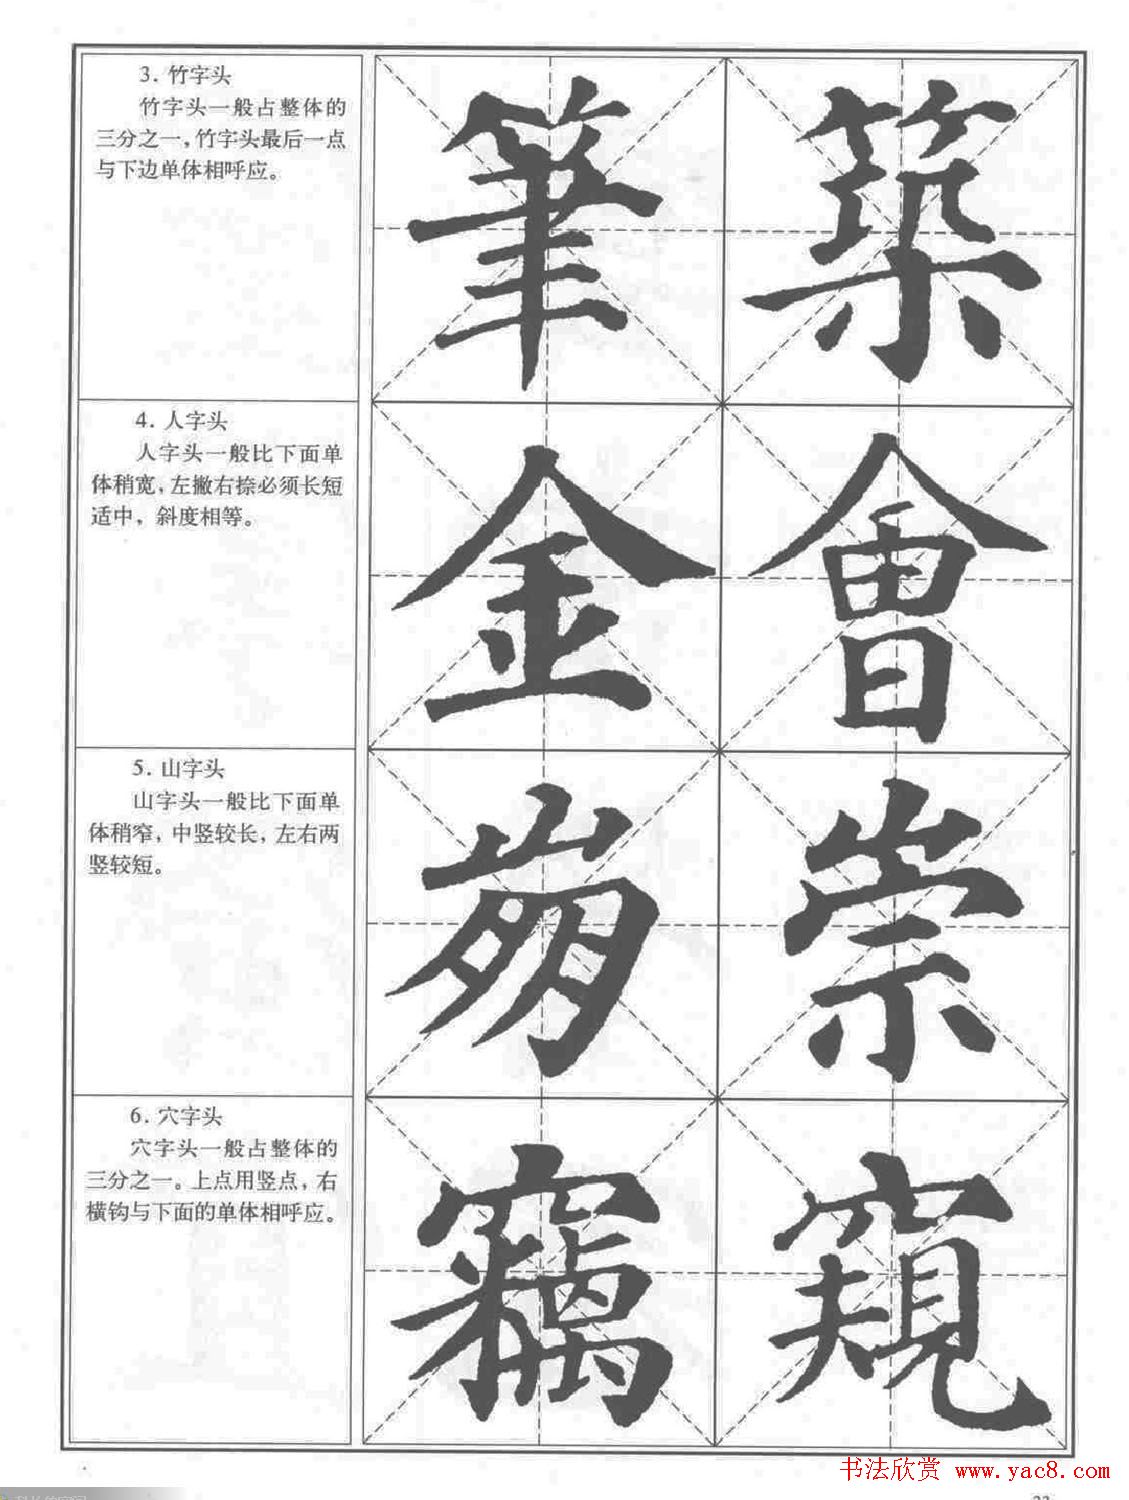 3. 竹字头
竹字头一般占整体的
三分之一，竹字头最后一点
与下边单体相呼应。
筆 築
4. 人字头
人字头一般比下面单
体稍宽，左撇右捺必须长短
适中，斜度相等。
金 會
5. 山字头
山字头一般比下面单
体稍窄，中竖较长，左右两
竖较短。
崇
6. 穴字头
穴字头一般占整体的
三分之一。上点用竖点，右
横钩与下面的单体相呼应。
竊 窺
书法欣赏 www.yac8.com